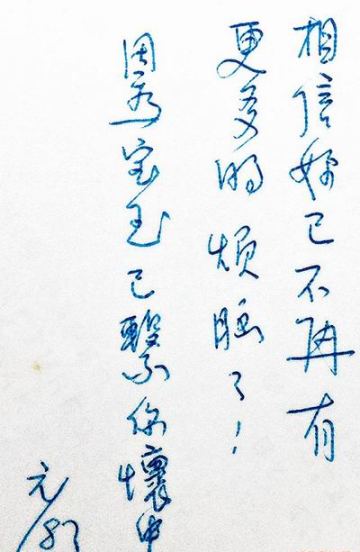 相信妳已不再有
更多的煩腦了！
因為寶玉已繫你懷中
元/87